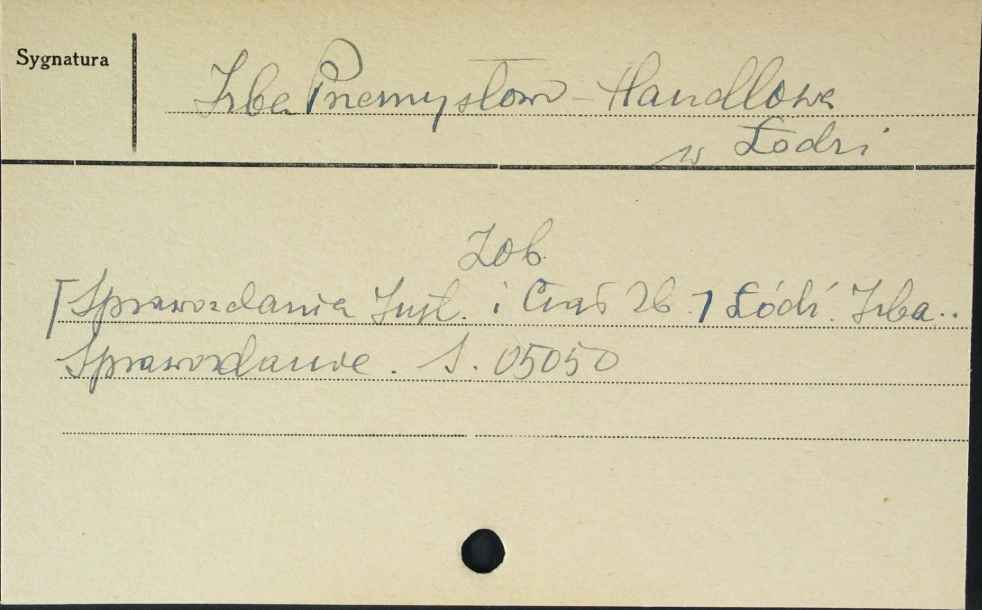 Sygnatura
Izba Przemysłowo-Handlowa
w Łodzi
Zob.
[Sprawozdania Inst. i 26.] Łódź. Izba..
Sprawozdanie. S. 05050